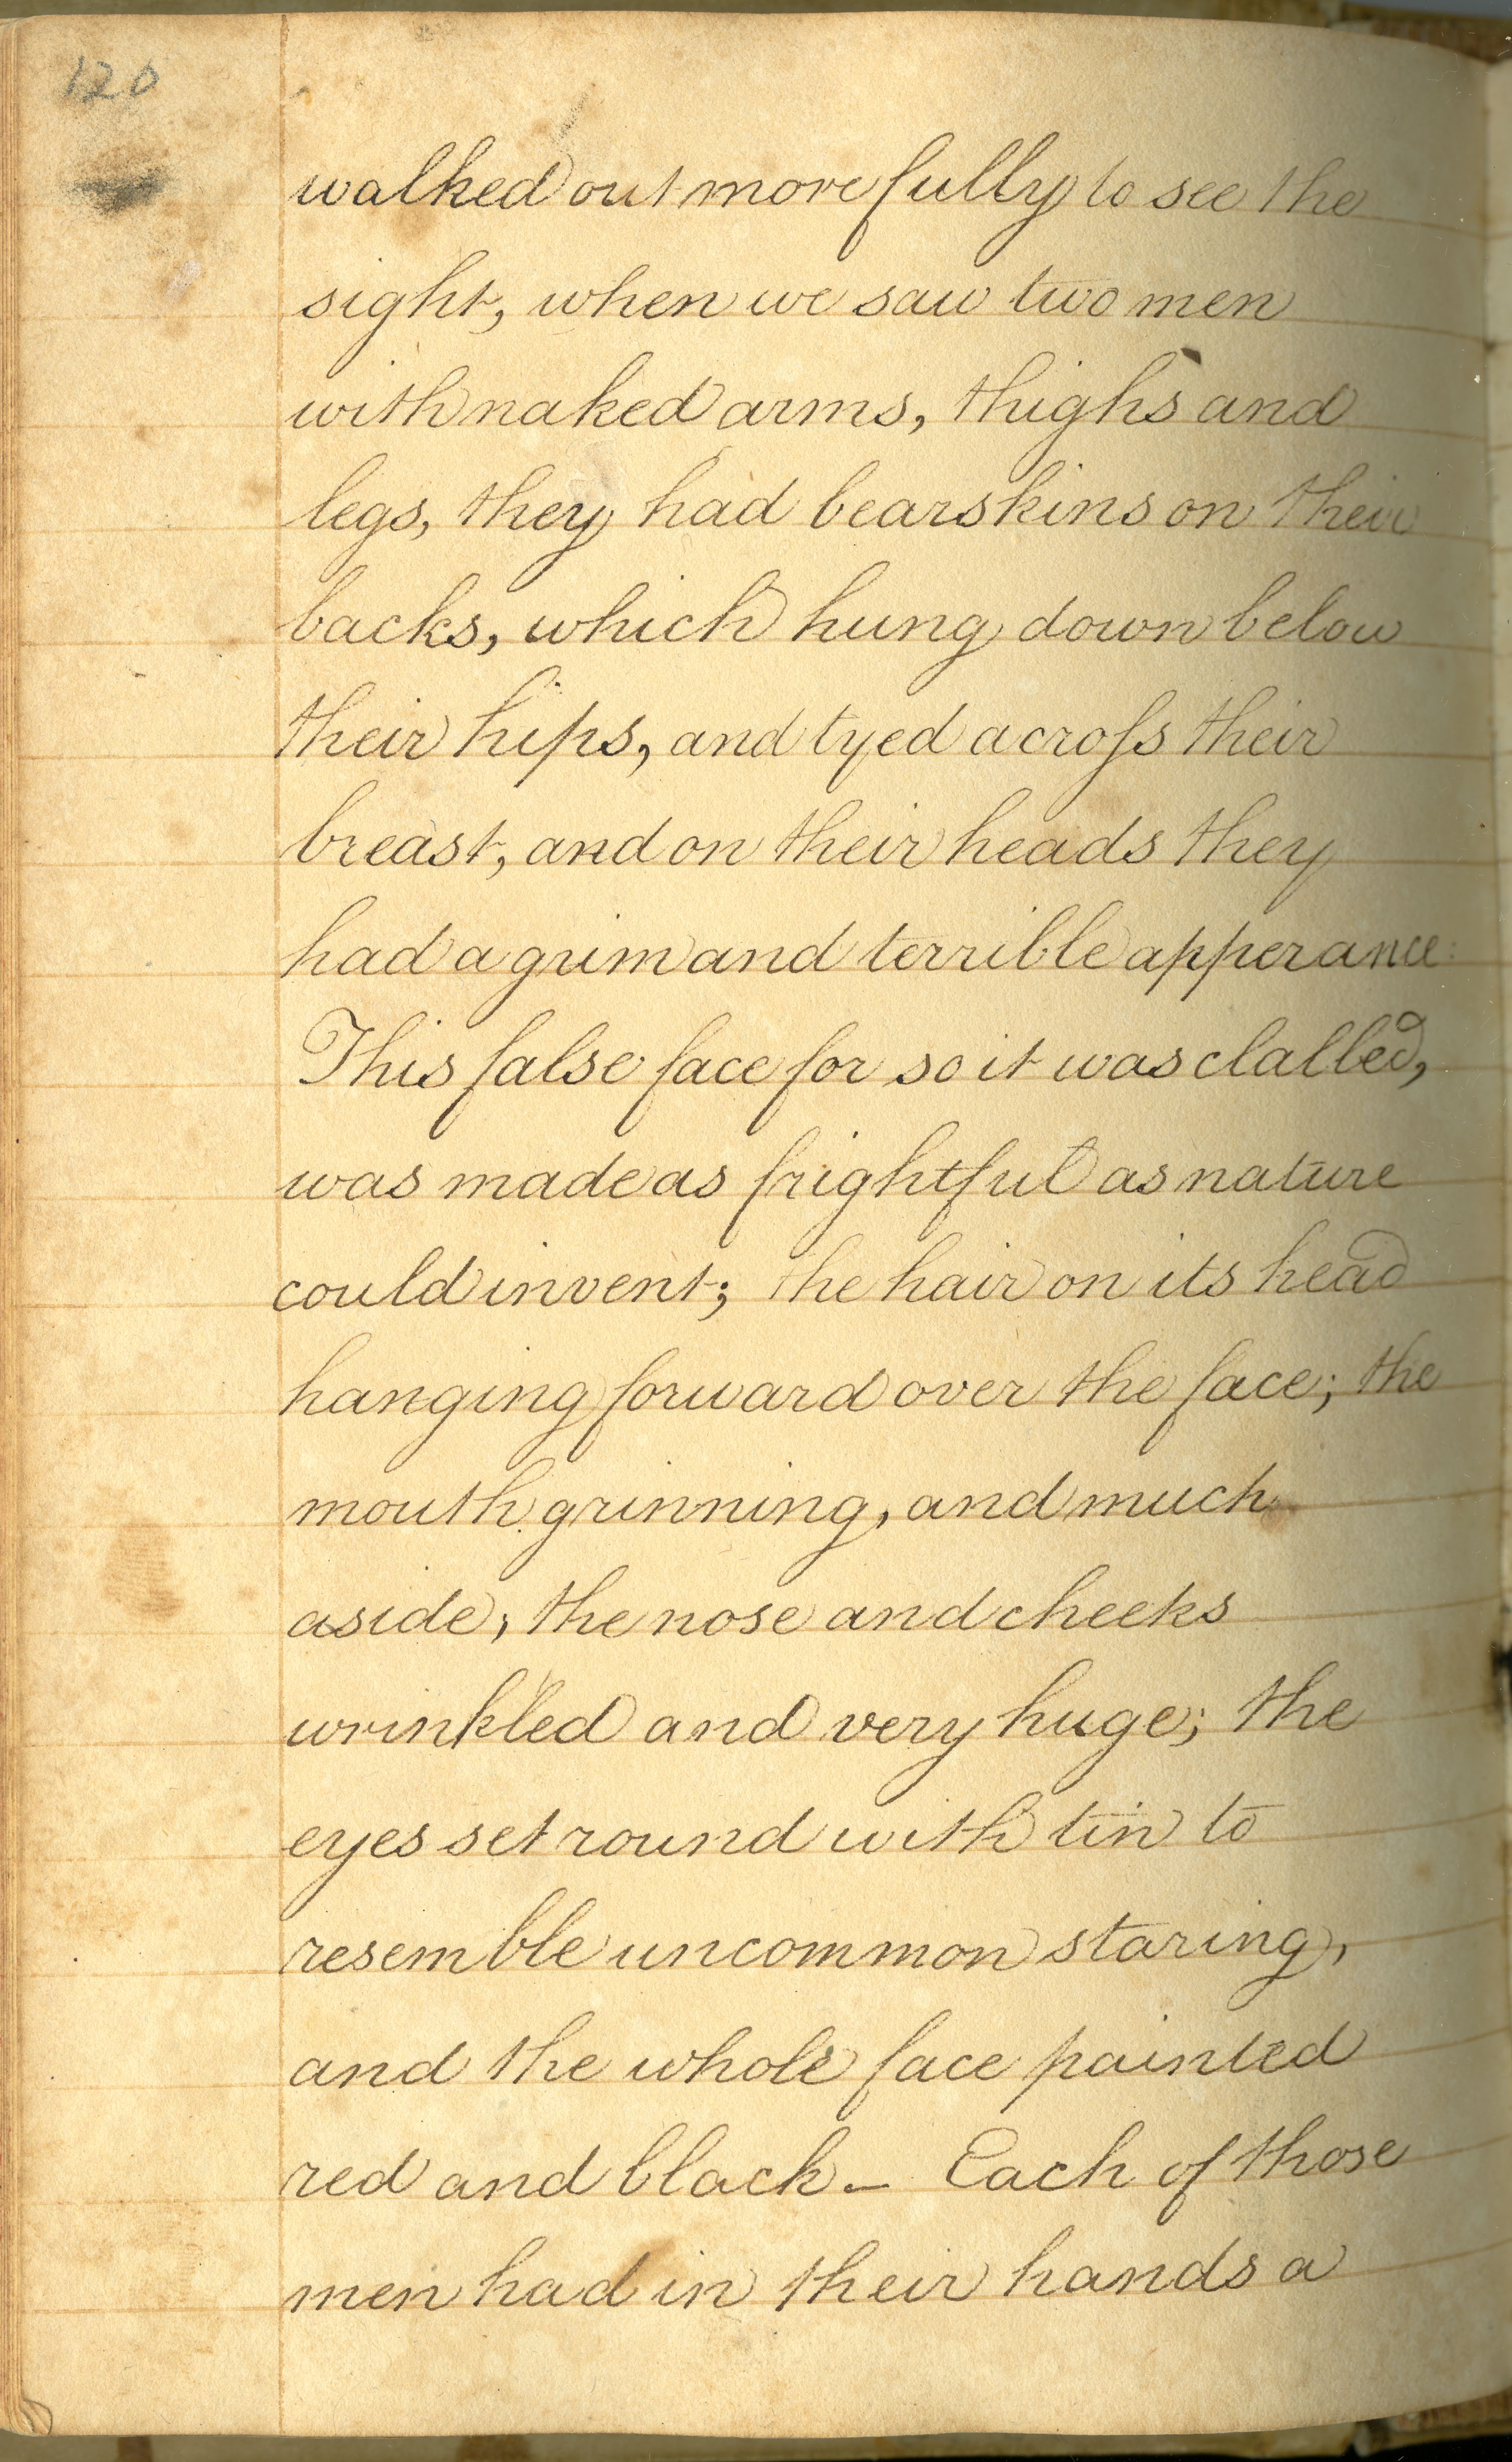 120
walked out more fully to see the
sight, when we saw two men
with naked arms, thighs and
legs, they had bearskins on their
backs, which hung down below
their hips, and tyed acroſs their
breast, and on their heads they
had a grim and terrible apperance:
This false face for so it was clalled,
was made as frightful as nature
could invent; the hair on its head
hanging forward over the face; the
mouth grinning, and much
aside, the nose and cheeks
wrinkled and very huge; the
eyes set round with tin to
resemble uncommon staring,
and the whole face painted
red and black — Each of those
men had in their hands a